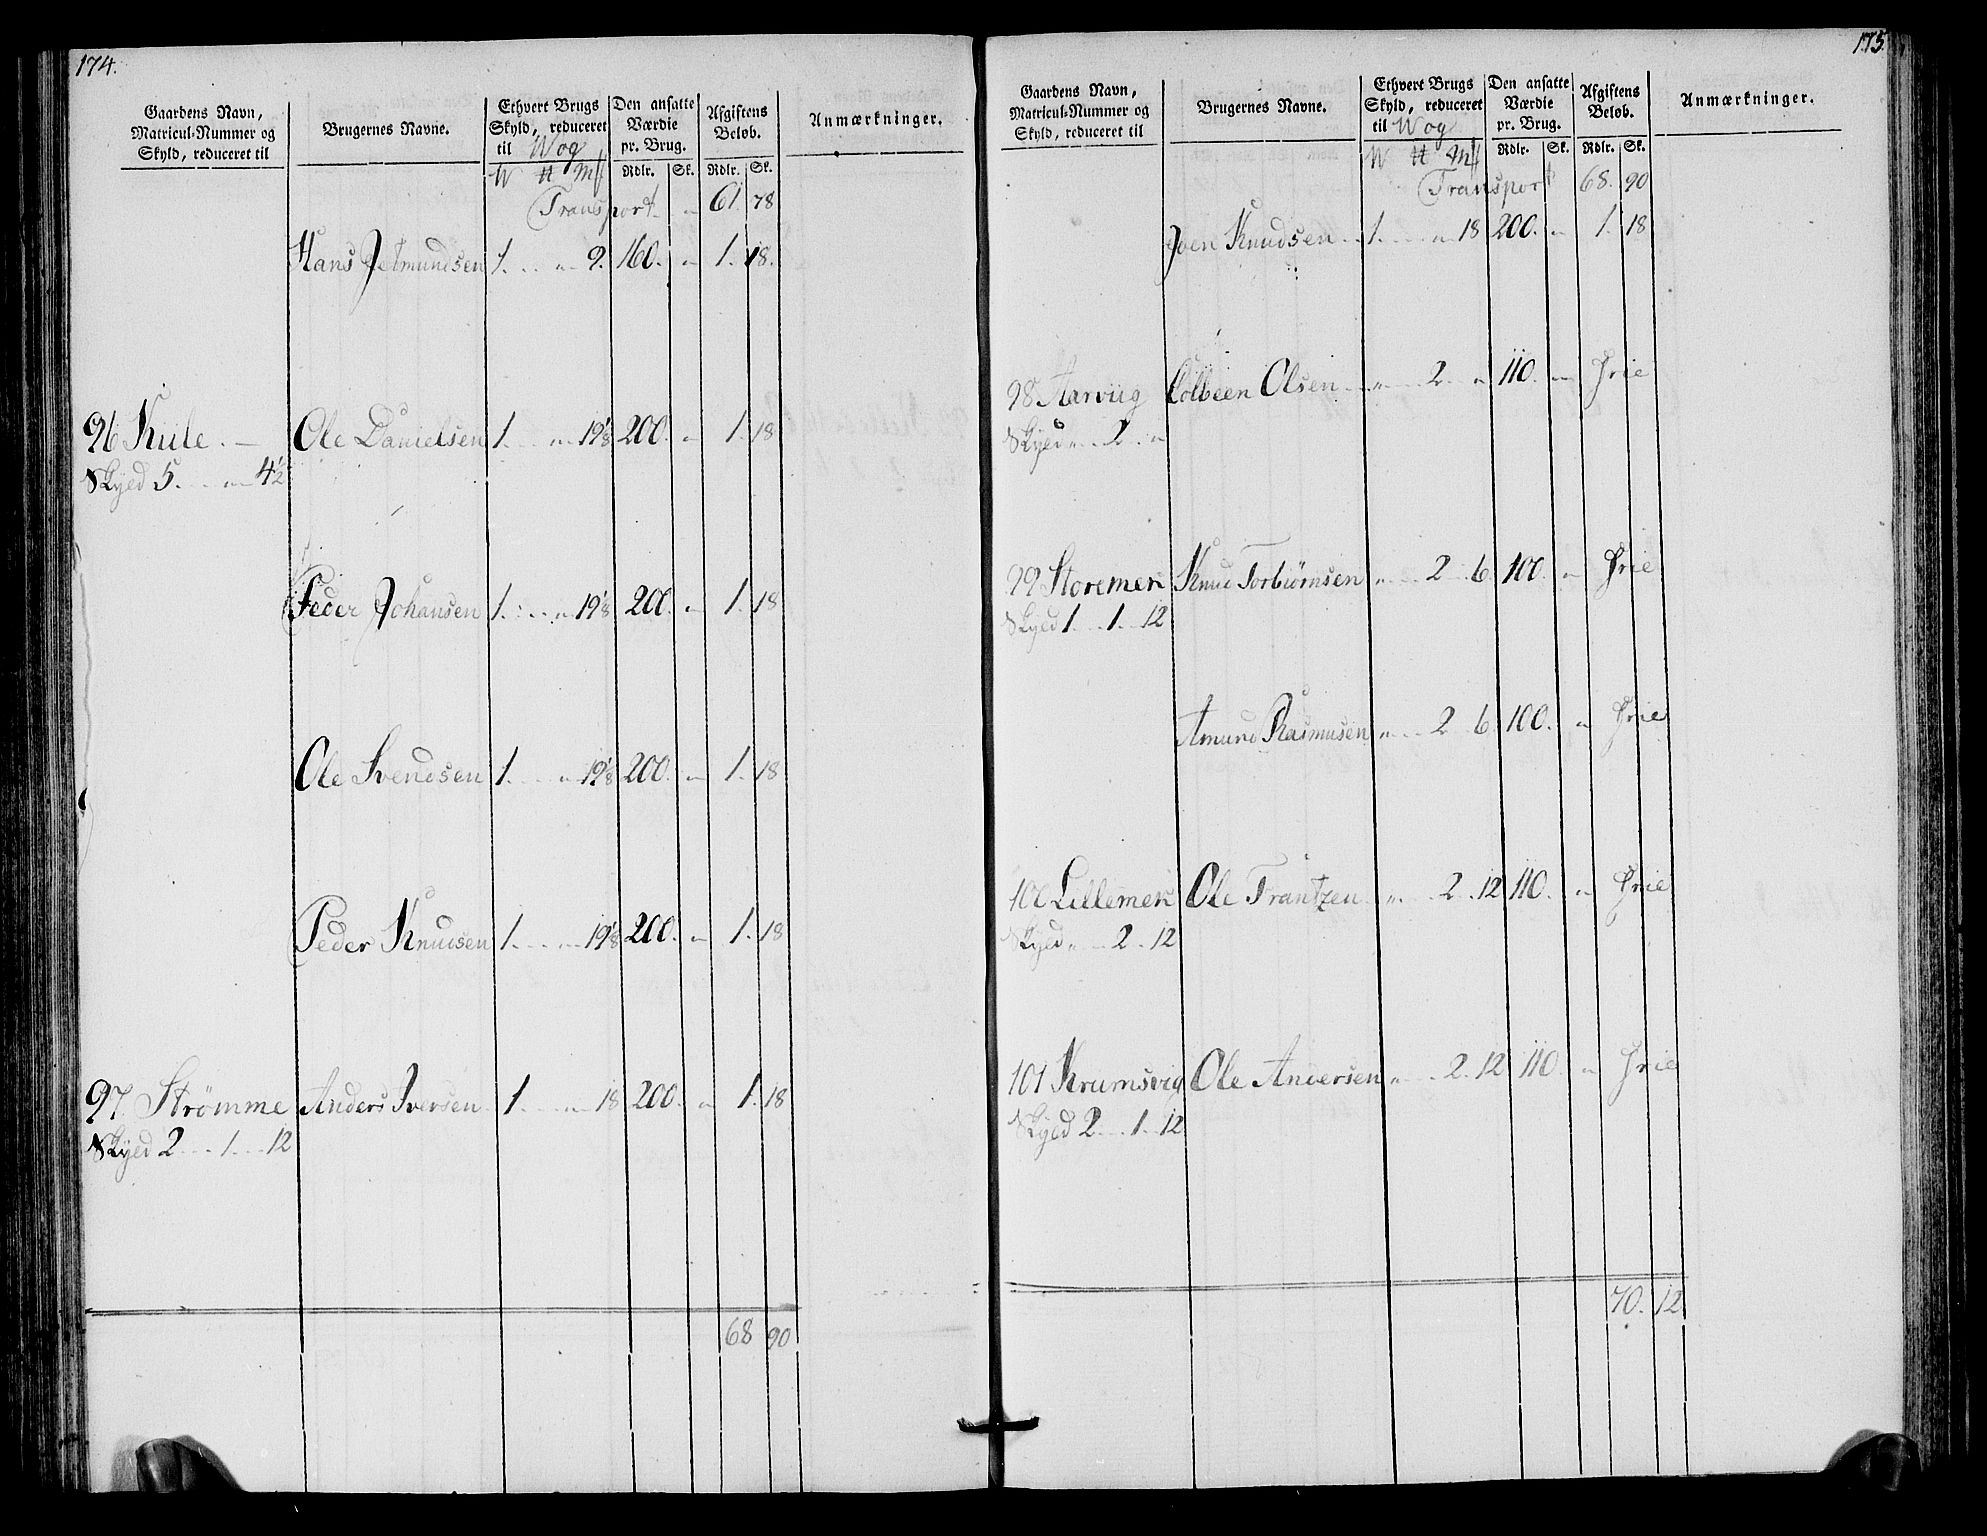 174.
Gaardens Navn,
Matricul-Nummer og
Skyld, reduceret til
Brugernes Navne.
Ethvert Brugs
Skyld, reduceret
til Wog
W ℔ Mk
Den ansatte
Værdie
pr. Brug.
Rdlr. Sk.
Afgiftens
Beløb.
Rdlr. Sk.
Anmærkninger.
Transport - „ 61. 78
Hans Jetmundsen 1. „ 9. 160. „ 1. 18.
96 Kule. — Ole Danielsen 1. „ 19⅛ 200. „ 1. 18
Skyld 5. „ 4½
Peder Johansen 1. „ 19⅛ 200. „ 1. 18
Ole Svendsen 1. „ 19⅛ 200. „ 1. 18
Peder Knudsen 1. „ 19⅛ 200. „ 1. 18
97 Strømme Anders Iversen 1. „ 18 200. „ 1. 18
Skyld 2 . 1 . 12
68 90
175.
Gaardens Navn,
Matricul-Nummer og
Skyld, reduceret til
Brugernes Navne.
Ethvert Brugs
Skyld, reduceret
til Wog
W ℔ Mk
Den ansatte
Værdie
pr. Brug.
Rdlr. Sk.
Afgiftens
Beløb.
Rdlr. Sk.
Anmærkninger.
Transport 68. 90
Iven Knudsen 1. „ 18 200. „ 1. 18
98 Aarviig Colbeen Olsen „ 2. „ 110. „ Frie
Skyld „ 2 „
99 Storemen Knud Torbiørnsen „ 2 6 100. „ Frie
Skyld 1. 1. 12
Amund Rasmusen „ 2 6 100. „ Frie
100 Lillemen Ole Frantzen „ 2. 12 110. „ Frie
Skyld „ 2. 12
101 Krumsvig Ole Andersen „ 2. 12 110. „ Frie
Skyld 2. 1. 12
70. 12